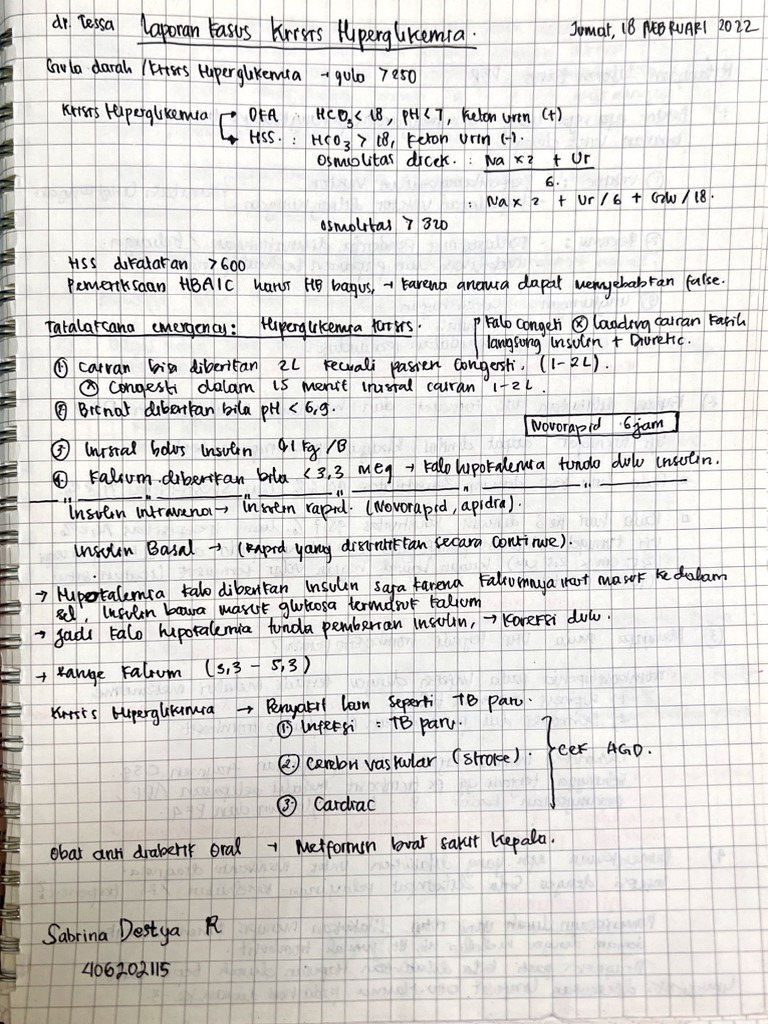 dr. Tessa Laporan Kasus Krisis Hiperglikemia. Jumat, 18 FEBRUARI 2022
Gula darah / Krisis Hiperglikemia → gula > 250
Krisis Hiperglikemia → DKA : HCO3 < 18, pH < 7, Keton urin (+)
→ HSS. : HCO3 > 18, Keton urin (-).
Osmolitas dicek. : Na x 2 + Ur
6.
: Na x 2 + Ur / 6 + GDW / 18.
Osmolitas > 320
HSS dikatakan > 600
Pemeriksaan HBA1C harus HB bagus, → karena anemia dapat menyebabkan false.
Tatalaksana emergency : Hiperglikemia krisis.
Kalo congesti ⓧ loading cairan kasih
langsung Insulin + Diuretic.
① Cairan bisa diberikan 2L kecuali pasien congesti. (1-2L).
ⓧ Congesti dalam 15 menit inisial cairan 1-2L.
② Bicnat diberikan bila pH < 6,9.
Novorapid 6 jam
③ Inisial bolus insulin 0,1 kg /B
④ Kalium diberikan bila < 3,3 meq → Kalo hipokalemia tunda dulu insulin.
Insulin intravena → Insulin rapid. (Novorapid, apidra).
Insulin Basal → (Rapid yang disuntikkan secara continue).
→ Hipokalemia kalo diberikan insulin saja karena kaliumnya ikut masuk kedalam
sel, insulin bawa masuk glukosa termasuk kalium
→ Jadi kalo hipokalemia tunda pemberian insulin, → Koreksi dulu.
→ Range kalium (3,3 - 5,3)
Krisis Hiperglikemia → Penyakit lain seperti TB paru.
① Infeksi : TB paru.
② Cerebri vaskular (stroke). Cek AGD.
③ Cardiac
Obat anti diabetik oral → Metformin buat sakit kepala.
Sabrina Destya R
406202115